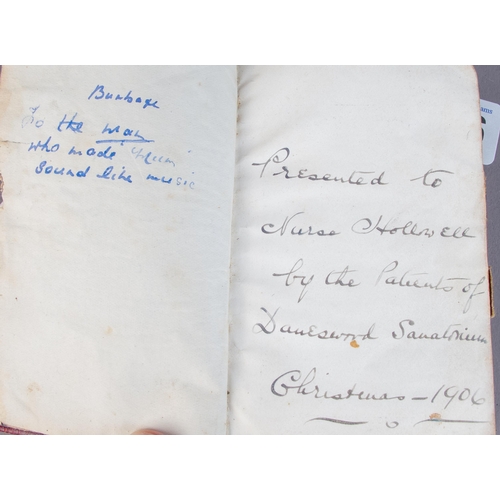 Burbage
To the man
who made
sound like music
Presented to
Nurse Hollwell
by the Patients of
Daneswood Sanatorium
Christmas - 1906